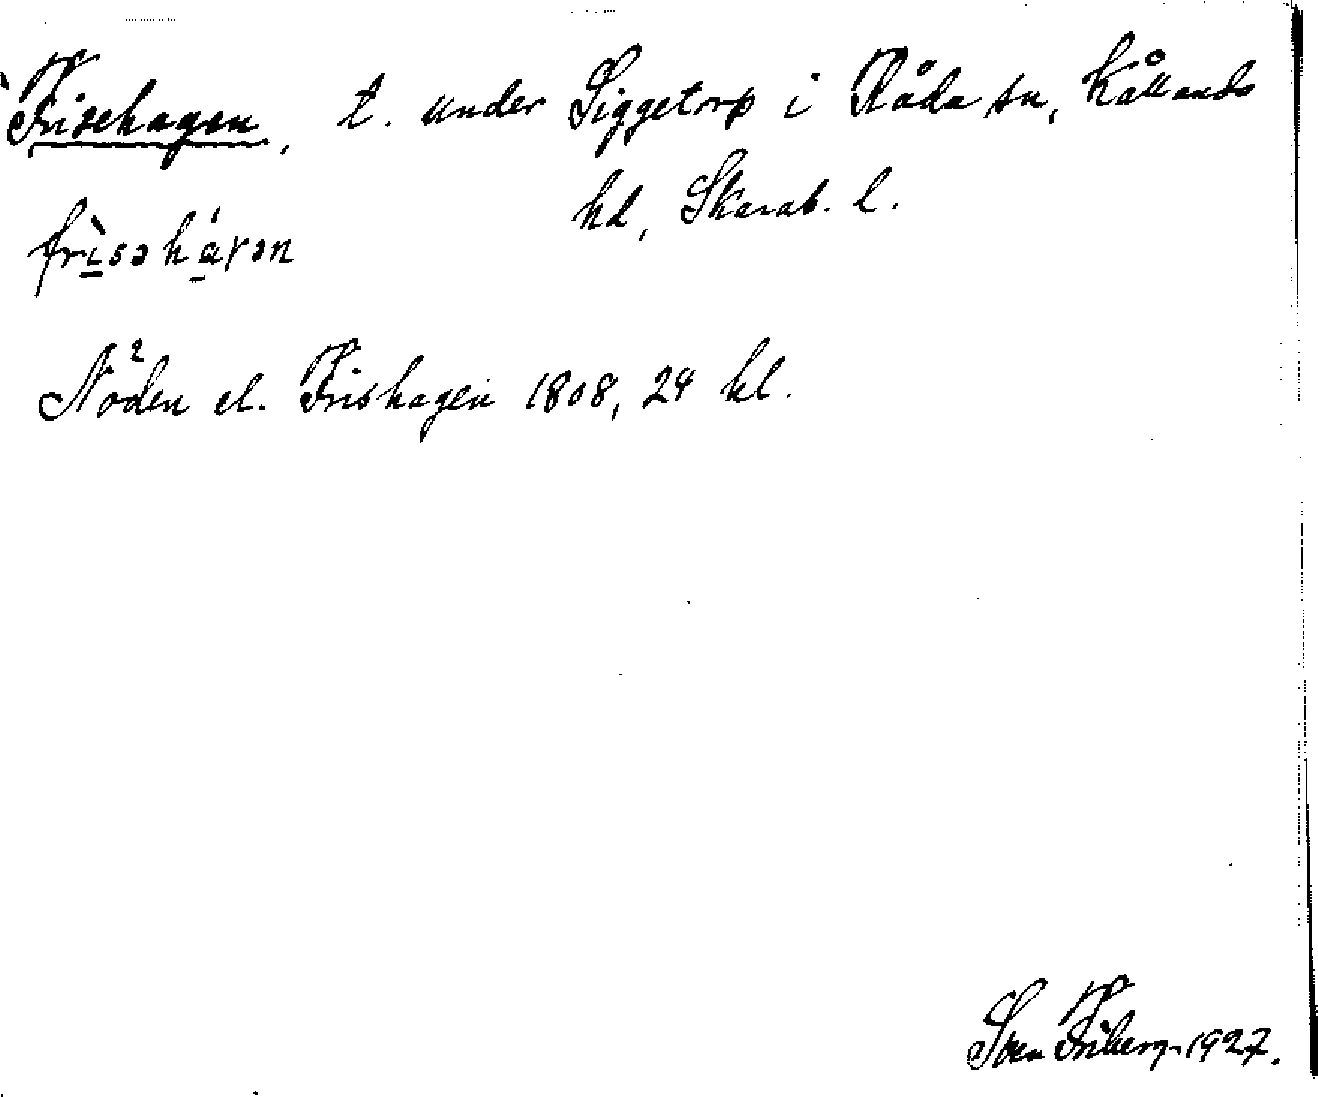 Frisehagen, t. under Siggetorp i Råda sn, Kållands
hd, Skarab. l.
frìsəháɣən
Nöden el. Frishagen 1808, 24 hl.
Sven Friberg 1927.